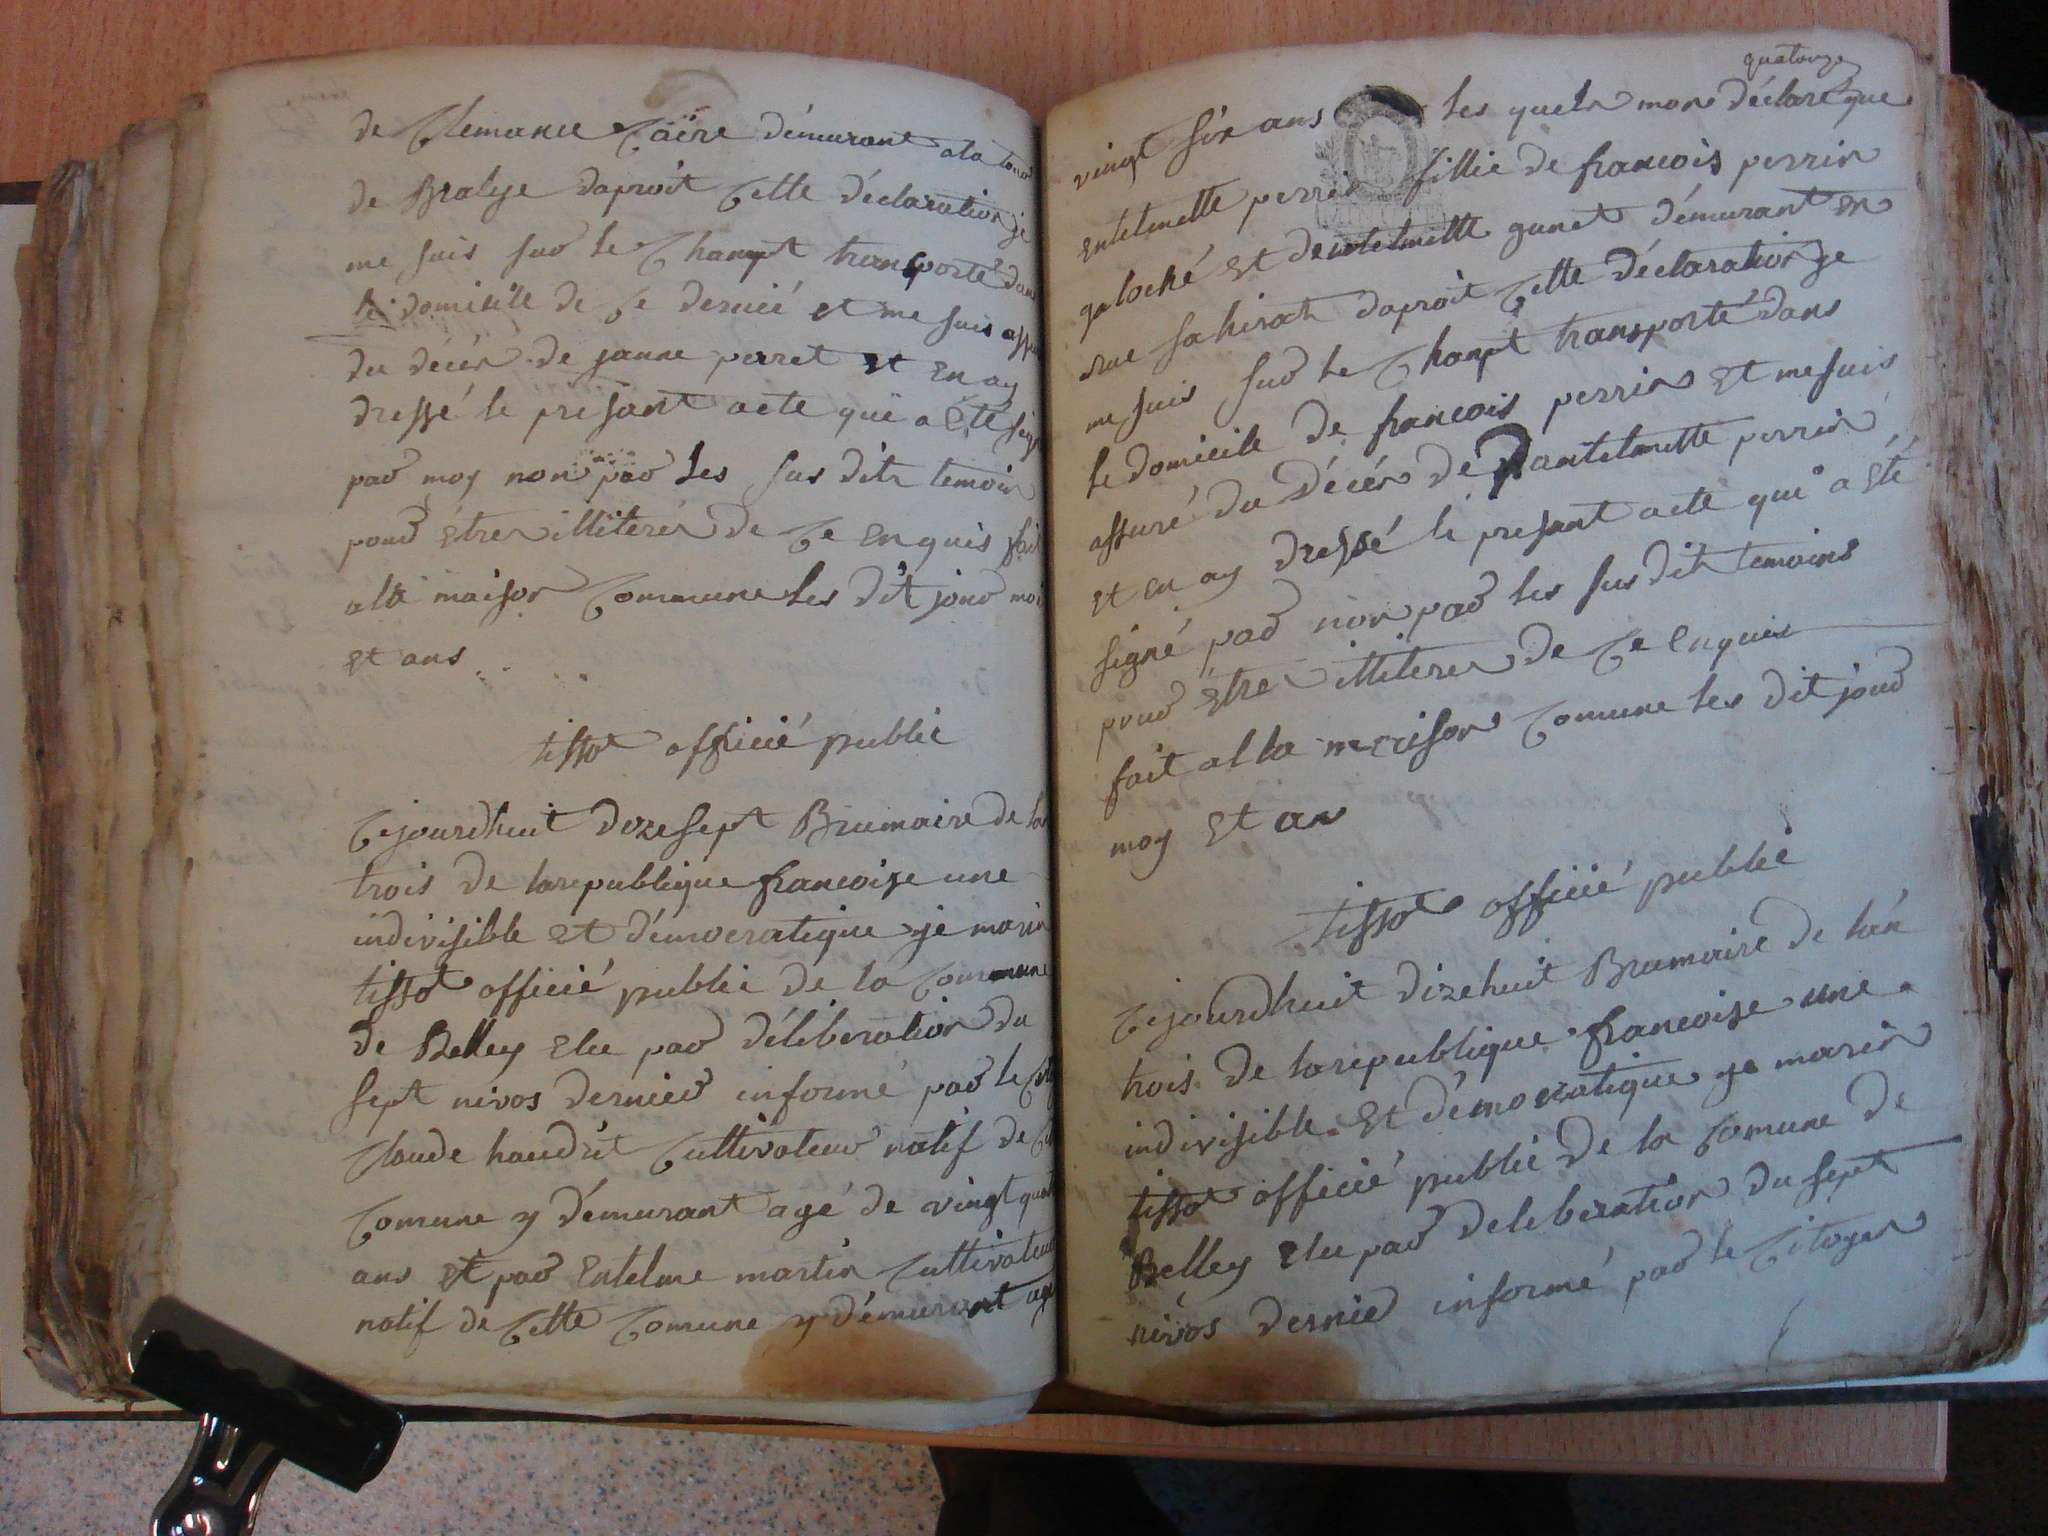 de Clemance Caire démurant a la tour
de Bralye daproit Cette déclaration je
me suis sur le Champt transporté dans
le domicille de Ce dernié et me suis assu
du décér de janne perret et En ay
dressé le presant acte qui a Eté sign
par moy non par les sus dits temoin
pour Etre illiterés de Ce Enquis fait
alla maison Commune les dit jour moi
Et ans
tissot officié public
Cejourdhuit dizesept Brumaire de lan
trois de larepublique francoise une
indivisible Et démocratique je marin
tissot officié public de la Commune
de Belley Elu par délibération du
sept nivos dernier informé par le Cito
Claude haudrit Cultivateur natif de
Comune y démurant agé de vingt quat
ans et par Entelme martin Cultivateur
natif de Cette Comune y démurant agé
quatorze
vingt six ans les quels mon déclaré que
Entelmette perrin fillie de francois perrin
galoché Et dentelmette gunet démurant En
rue daproit Cette déclaration je
me suis sur le Champt transporté dans
le domicile de francois perrin Et me suis
assuré du décér de dantelmette perrin
et En ay dressé le presant acte qui a Eté
signé par non par les sus dit temoins
pour Etre illiteres de Ce Enquis
fait alla maison Comune les dit jour
moy Et an
tissot officié public
Cejourdhuit dizehuit Brumaire de lan
trois de larepublique francoise une
indivisible Et démocratique je marin
tissot officié public de la Comune de
Belley Elu par deliberation du sept
nivos dernier informé par le Citoyen